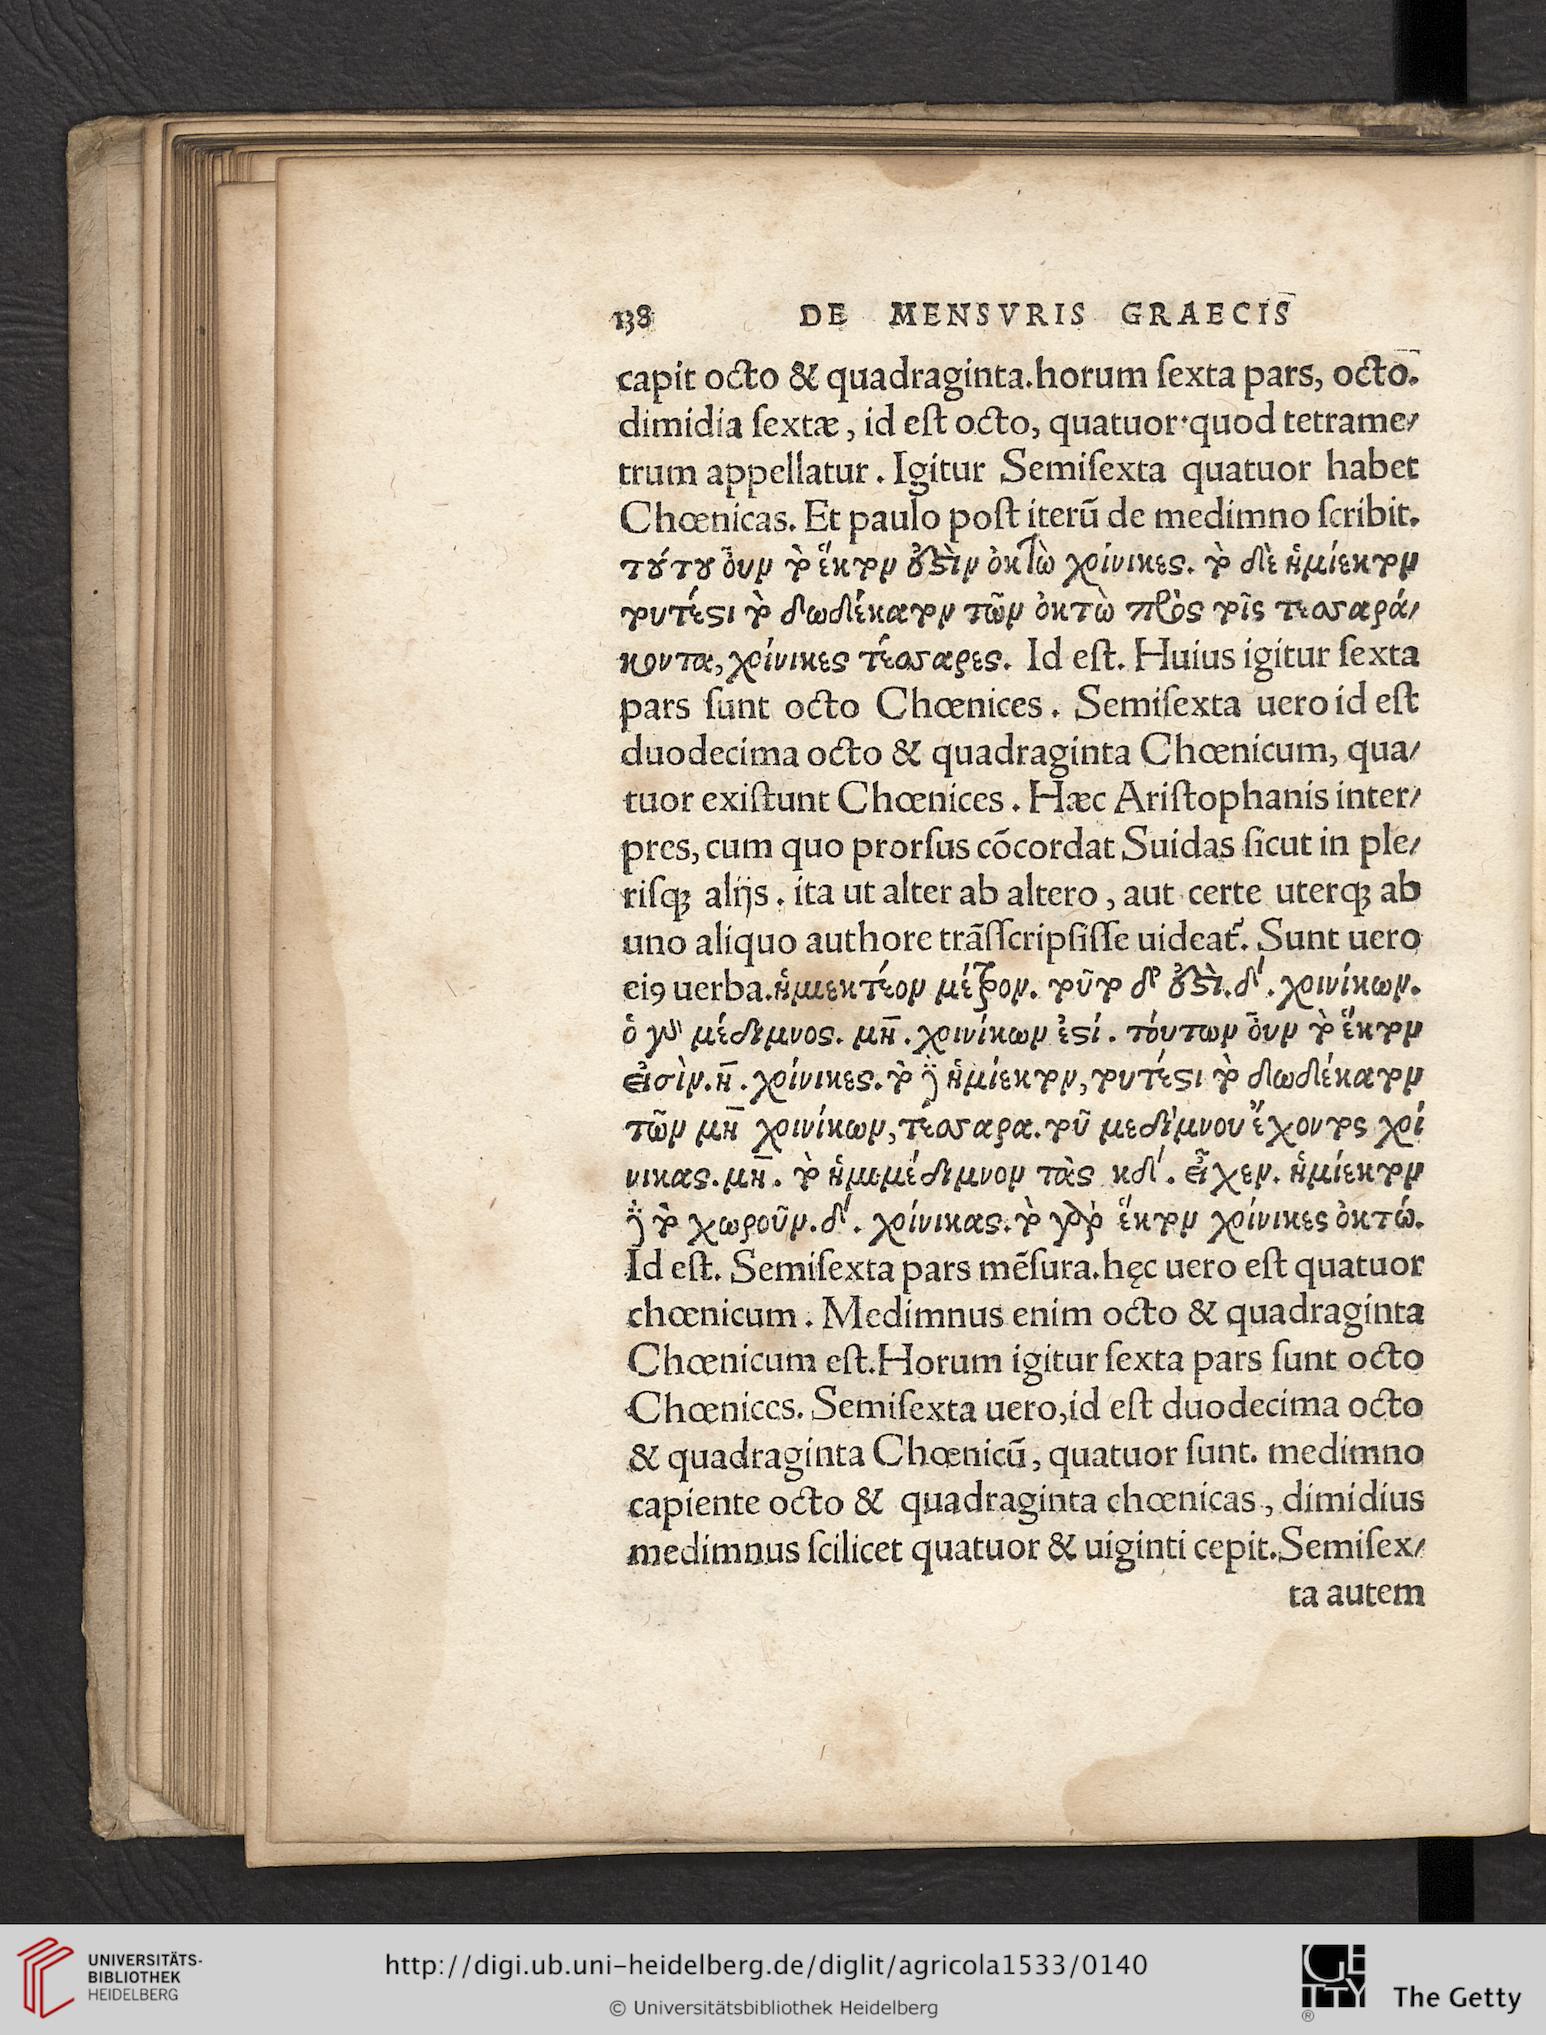 138 DE MENSVRIS GRAECIS
capit octo & quadraginta.horum ſexta pars, octo.
dimidia ſextæ, id eſt octo, quatuor·quod tetrame/
trum appellatur. Igitur Semiſexta quatuor habet
Chœnicas. Et paulo poſt iterũ de medimno ſcribit.
τούτου ὄυν τὸ ἕκτον ὀυσὶν ὀκτὼ χοίνικες. τὸ δὲ ἡμίεκτον
τουτέστι τὸ δωδέκατον τῶν ὀκτὼ πρὸς τοῖς τεσσαρά/
κοντα, χοίνικες τέσσαρες. Id eſt. Huius igitur ſexta
pars ſunt octo Chœnices. Semiſexta uero id eſt
duodecima octo & quadraginta Chœnicum, qua/
tuor exiſtunt Chœnices. Hæc Ariſtophanis inter/
pres, cum quo prorſus cõcordat Suidas ſicut in ple/
riſqꝫ alijs. ita ut alter ab altero, aut certe uterqꝫ ab
uno aliquo authore trãſſcripſiſſe uideat᷑. Sunt uero
eiꝰ uerba.ἡμιεκτέον μέτρον. τοῦτο δ' ὀυσὶ.δ'. χοινίκων.
ὁ γὰρ μέδιμνος. μη̅. χοινίκων ἐστί. τόυτων ὄυν τὸ ἕκτον
εἰσὶν.η̅. χοίνικες. τὸ δὲ ἡμίεκτον, τουτέστι τὸ δωδέκατον
τῶν μη̅ χοινίκων, τέσσαρα. τοῦ μεδίμνου ἔχοντος χοί
νικας. μη̅. τὸ ἡμιμέδιμνον τὰς κδ'. εἶχεν. ἡμίεκτον
δὲ τὸ χωροῦν.δ'. χοίνικας. τὸ γὰρ ἕκτον χοίνικες ὀκτώ.
Id eſt. Semiſexta pars mẽſura.hęc uero eſt quatuor
chœnicum. Medimnus enim octo & quadraginta
Chœnicum eſt.Horum igitur ſexta pars ſunt octo
Chœnices. Semiſexta uero,id eſt duodecima octo
& quadraginta Chœnicũ, quatuor ſunt. medimno
capiente octo & quadraginta chœnicas, dimidius
medimnus ſcilicet quatuor & uiginti cepit.Semiſex/
ta autem
UNIVERSITÄTS-
BIBLIOTHEK
HEIDELBERG
http://digi.ub.uni-heidelberg.de/diglit/agricola1533/0140
© Universitätsbibliothek Heidelberg
GETTY
® The Getty